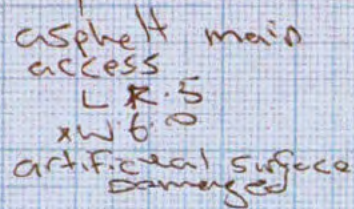 asphelt main
access
L R.5
xW 6.0
artificial surface
damaged